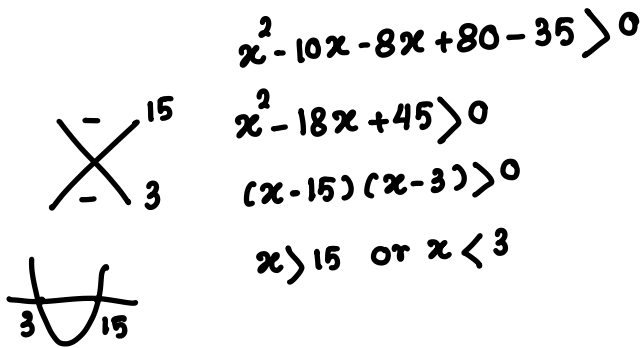 x² - 10x - 8x + 80 - 35 > 0
- 15
x² - 18x + 45 > 0
- 3
(x - 15) (x - 3) > 0
x > 15 or x < 3
3 15